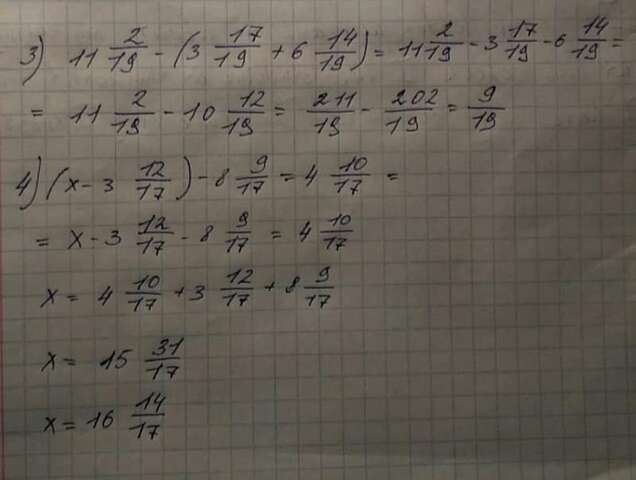 3) 11 2/19 - (3 17/19 + 6 14/19) = 11 2/19 - 3 17/19 - 6 14/19 =
= 11 2/19 - 10 12/19 = 211/19 - 202/19 = 9/19
4) (x - 3 12/17) - 8 9/17 = 4 10/17 =
= x - 3 12/17 - 8 9/17 = 4 10/17
x = 4 10/17 + 3 12/17 + 8 9/17
x = 15 31/17
x = 16 14/17